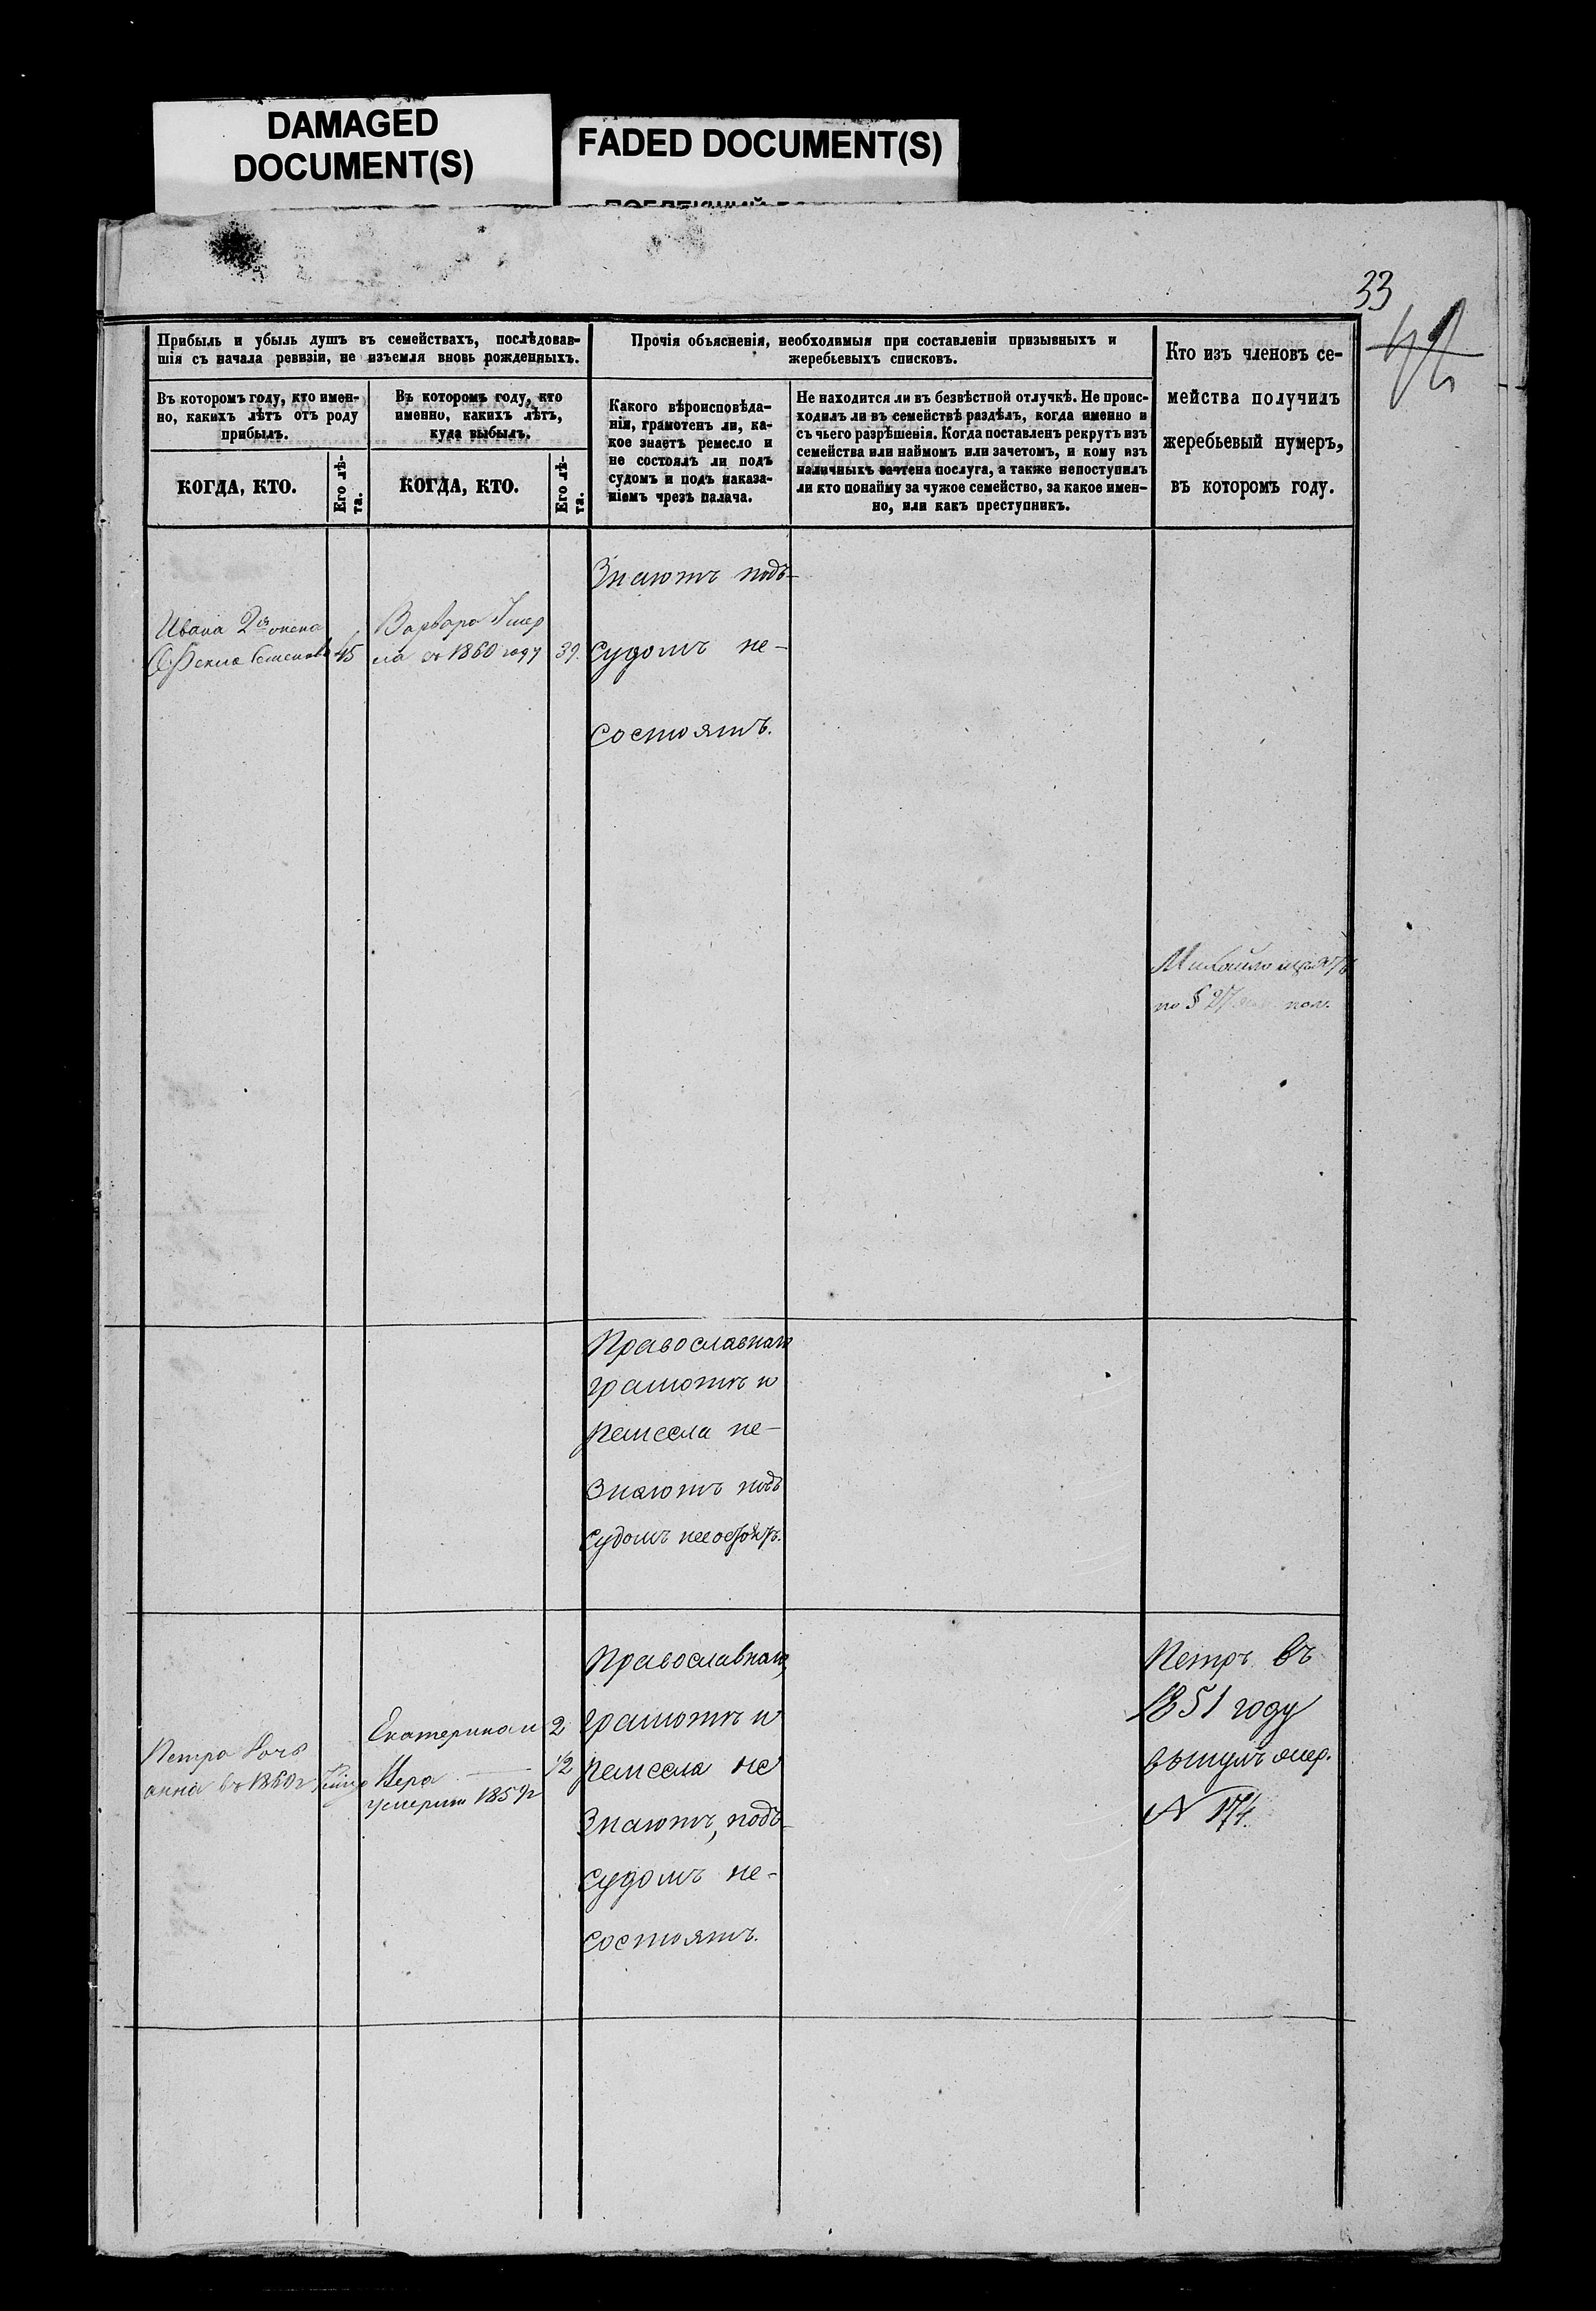 DAMAGED
DOCUMENT(S)
FADED DOCUMENT(S)
33
Прибыль и убыль душъ въ семействахъ, послѣдовав-
шія съ начала ревизіи, не изъемля вновь рожденныхъ.
Прочія объясненія, необходимыя при составленіи призывныхъ и
жеребьевыхъ списковъ.
Кто изъ членовъ се-
мейства получилъ
жеребьевый нумеръ,
въ которомъ году.
Въ которомъ году, кто имен-
но, какихъ лѣтъ отъ роду
прибылъ.
Въ которомъ году, кто
именно, какихъ лѣтъ,
куда выбылъ.
Какого вѣроисповѣда-
нія, грамотенъ ли, ка-
кое знаетъ ремесло и
не состоялъ ли подъ
судомъ и подъ наказа-
ніемъ чрезъ палача.
Не находится ли въ безвѣстной отлучкѣ. Не проис-
ходилъ ли въ семействѣ раздѣлъ, когда именно и
съ чьего разрѣшенія. Когда поставленъ рекрутъ изъ
семейства или наймомъ или зачетомъ, и кому изъ
наличныхъ зачтена послуга, а также непоступилъ
ли кто понайму за чужое семейство, за какое имен-
но, или какъ преступникъ.
КОГДА, КТО.
Его лѣ-
та.
КОГДА, КТО.
Его лѣ-
та.
Ивана 2я жена
45
Варвара Умер
ла въ 1860 году
39.
Знаютъ подъ-
судомъ не-
состоятъ.
Михайло
по § 27 пол.
Православная
грамотѣ и
ремесла не-
знаютъ подъ
судомъ несостоятъ.
Петра дочь
анна въ 1860 г
Екатерина и
2
Вера
1/2
умерли 185
Православная,
грамотѣ и
ремесла не
знаютъ, подъ-
судомъ не-
состоятъ.
Петръ въ
1851 году
вынулъ жер.
N 174.